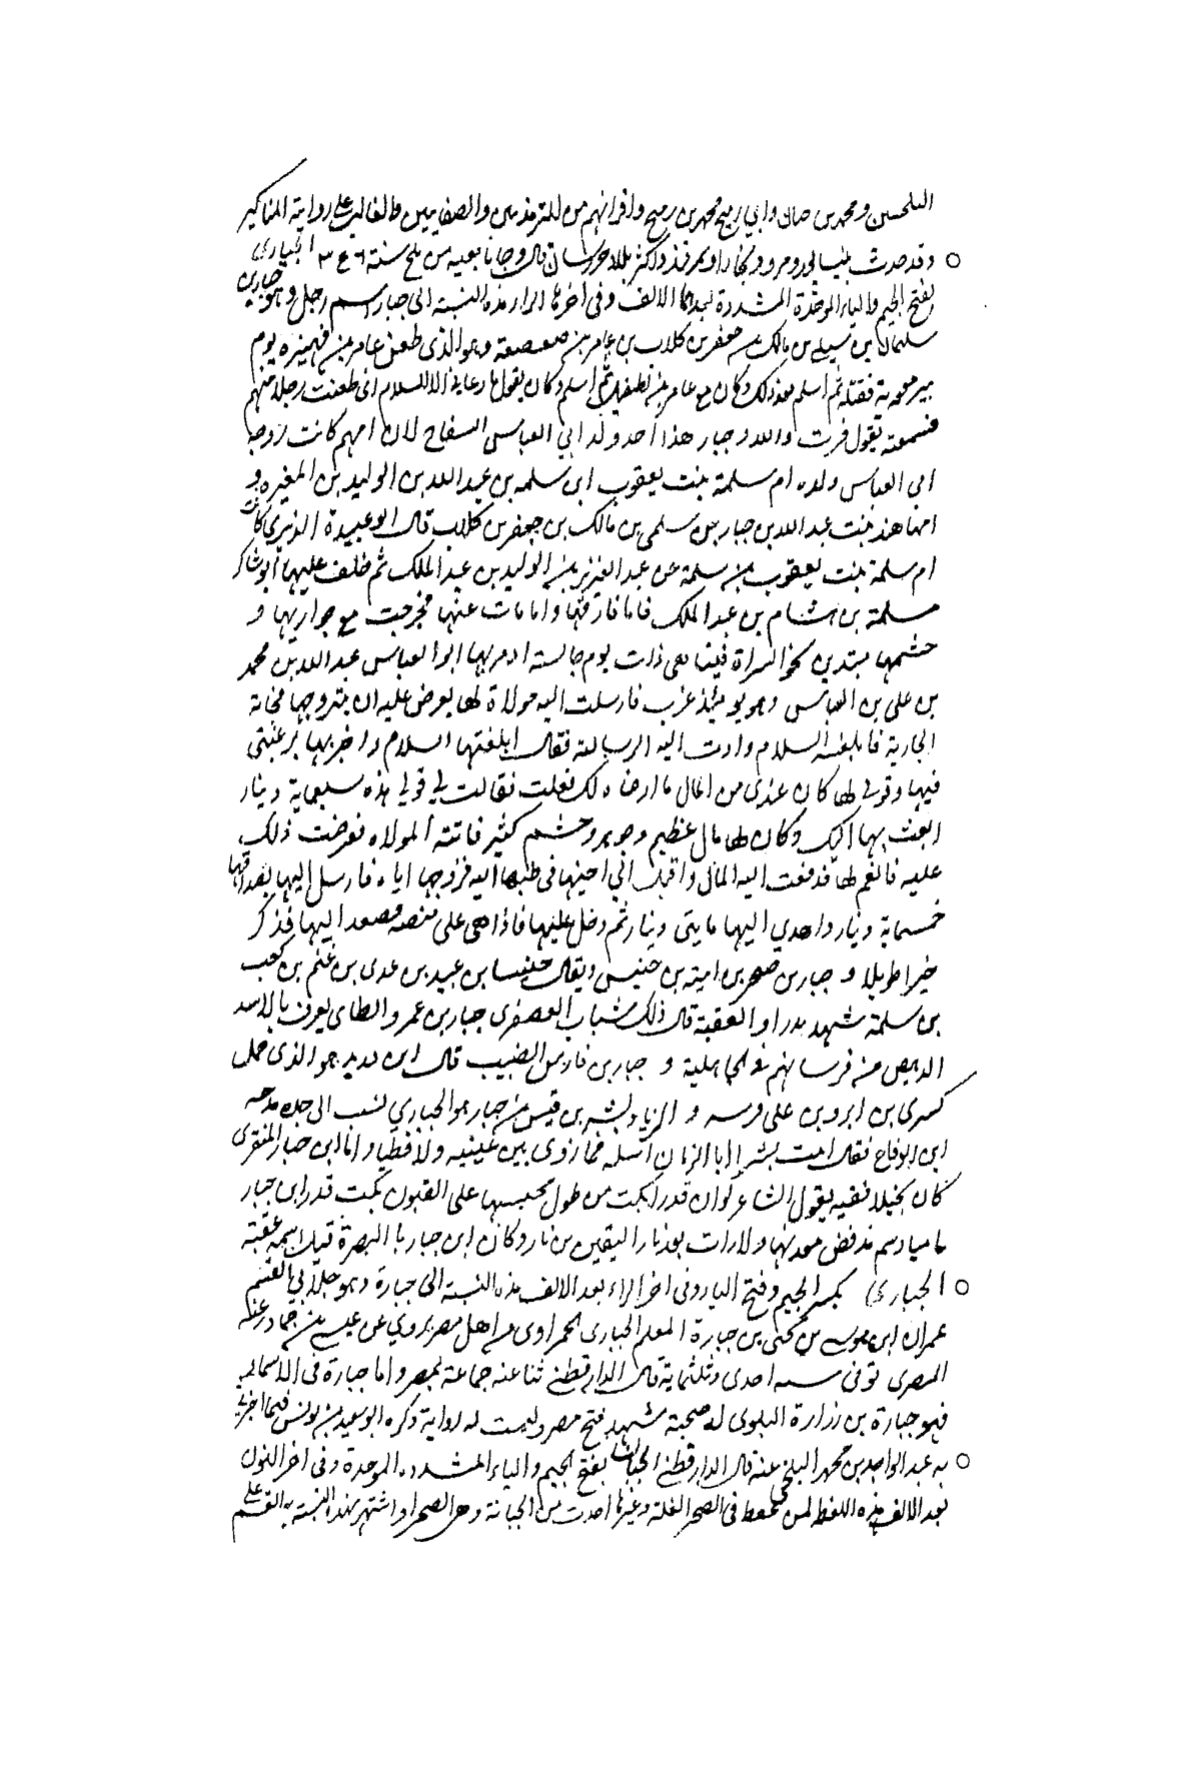 البلخيين ومحمد بن صالح وابي رميح محمد بن رميح واقرانهم من الترمذيين والصغانيين والغالب على رواية المناكير
وقد حدث بنيسابور ومرو وبخارا وسمرقند واكثر بلاد خراسان وجانا نعيه من بلخ سنة ٣٤٦ الجباري
بفتح الجيم والباء الموحدة المشددة بعدها الالف وفي اخرها الراء هذه النسبة الى جبار اسم رجل وهو جبار بن
سلمان بن مالك بن جعفر بن كلاب بن عامر بن صعصعة وهو الذي طعن عامر بن فهيرة يوم
بير معونة فقتله ثم اسلم بعد ذلك وكان مع عامر بن الطفيل ثم اسلم وكان يقول مما دعاني الى الاسلام اني طعنت رجلا منهم
فسمعته يقول فزت والله وجبار هذا احد ولد ابي العباس السفاح لان امهم كانت زوجة
ابي العباس ولده ام سلمة بنت يعقوب ابن سلمه بن عبد الله بن الوليد بن المغيرة و
امها هند بنت عبد الله بن جبار بن سلمى بن مالك بن جعفر بن كلاب قال ابو عبيدة الزبيري كانت
ام سلمة بنت يعقوب بن سلمة عن عبد العزيز بن الوليد بن عبد الملك ثم خلف عليها ابو شاكر
مسلمة بن هشام بن عبد الملك فاما فارقها واما مات عنها فخرجت مع جواريها و
حشمها مبتدين نحو السراة فبينا هي ذات يوم جالسة اذ مر بها ابو العباس عبد الله بن محمد
بن علي بن العباس وهو يومئذ عزب فارسلت اليه مولاة لها يعرض عليه ان يتزوجها فجاءته
الجارية فابلغته السلام وادت اليه الرسالة فقال ابلغتها السلام واخبريها برغبتي
فيها وقولي لها كان عندي من المال ما ارضاه لك فعلت فقالت لي قولي هذه سبعماية دينار
ابعث بها اليك وكان لها مال عظيم وجوهر وحشم كثير فاتته المولاه فعرضت ذلك
عليه فانعم لها فدفعت اليه المال واقبل الى اخيها فخطبها اليه فزوجها اياه فارسل اليها بصداقها
خمسماية دينار واهدي اليها مايتى دينار ثم دخل عليها فاذا هي على منصه فصعد اليها فذكر
خبرا طويلا و جبار بن صخر بن امية بن خنيس ويقال خنيسا بن عبيد بن عدى بن غنم بن كعب
بن سلمة شهد بدرا والعقبة قال ذلك شباب العصفرى جبار بن عمرو الطاى يعرف بالاسد
الرهيص من فرسانهم في الجاهلية و جبار بن فارس الضبيب قال ابن دريد هو الذى حمل
كسرى بن ابرويز على فرسه و الزياد بشر بن قيس بن جبار هو الجباري نسب الى جده مدحه
ابن الوقاح فقال بشر ابا الزيان اسله فما زوى بين عينيه ولا قطبا و اما ابن جبار المنقرى
كان بخيلا ففيه يقول الشاعر لو ان قدرا بكت من طول محبسها على القبول بكت قدر ابن جبار
ما مسها دسم مذ فض معدنها ولا رات بعد نار القين من نار وكان ابن جبار بالبصرة قيل اسمه عقبة
الجباري بكسر الجيم وفتح الباء وفى اخر الراء بعد الالف هذه النسبة الى جبارة وهو جد لابي القسم
عمران ابن موسى بن يحيى بن جبارة المعلم الجبارى الحمراوى من اهل مصر يروي عن عيسى بن حماد زغبة
المصرى توفى سنه احدى وثلثماية قال الدارقطني ثنا عنه جماعة بمصر واما جبارة فى الاسماء
فهو جبارة بن زرارة البلوى له صحبة شهد فتح مصر وليست له رواية ذكره ابو سعيد بن يونس فيما اخبرني
به عبد الواحد بن محمد البلخي عنه قال الدارقطني الجبان بفتح الجيم والباء المشدده الموحدة وفى اخر النون
بعد الالف هذه اللفظ لمن يحفظ فى الصحراء الغلة وغيرها اخذت من الجبانة وهى الصحراء واشتهر بهذا النسبة ابو القسم على